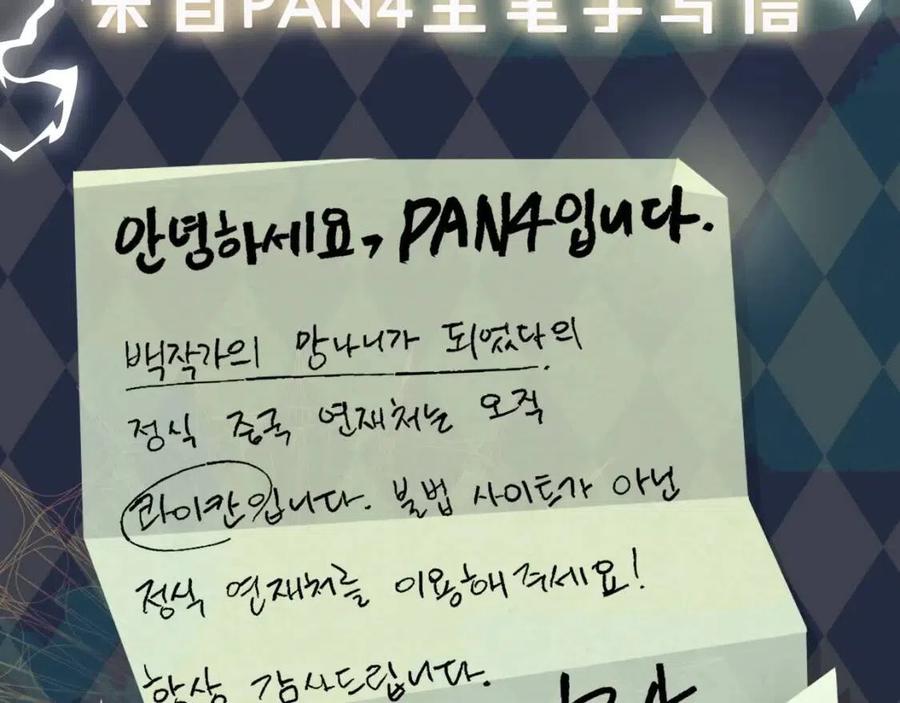 来自PAN4主笔手写信
안녕하세요, PAN4입니다.
백작가의 망나니가 되었다의
정식 중국 연재처는 오직
콰이칸입니다. 불법 사이트가 아닌
정식 연재처를 이용해주세요!
항상 감사드립니다.